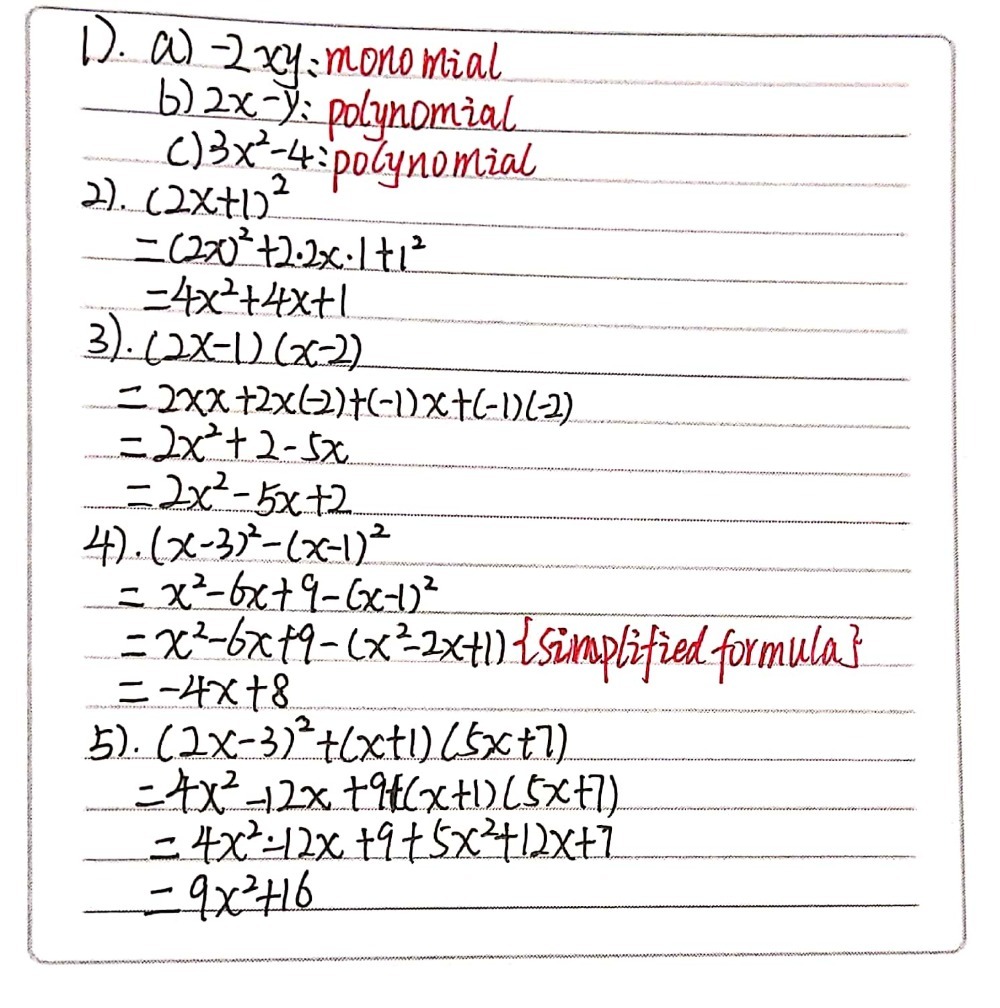 1). a) -2xy: monomial
b) 2x-y: polynomial
c) 3x²-4: polynomial
2). (2x+1)²
=(2x)²+2·2x·1+1²
=4x²+4x+1
3). (2x-1)(x-2)
= 2xx+2x(-2)+(-1)x+(-1)(-2)
= 2x²+2-5x
= 2x²-5x+2
4). (x-3)²-(x-1)²
= x²-6x+9-(x-1)²
= x²-6x+9-(x²-2x+1) {simplified formula}
= -4x+8
5). (2x-3)²+(x+1)(5x+7)
=4x²-12x+9+(x+1)(5x+7)
= 4x²-12x+9+5x²+12x+7
= 9x²+16